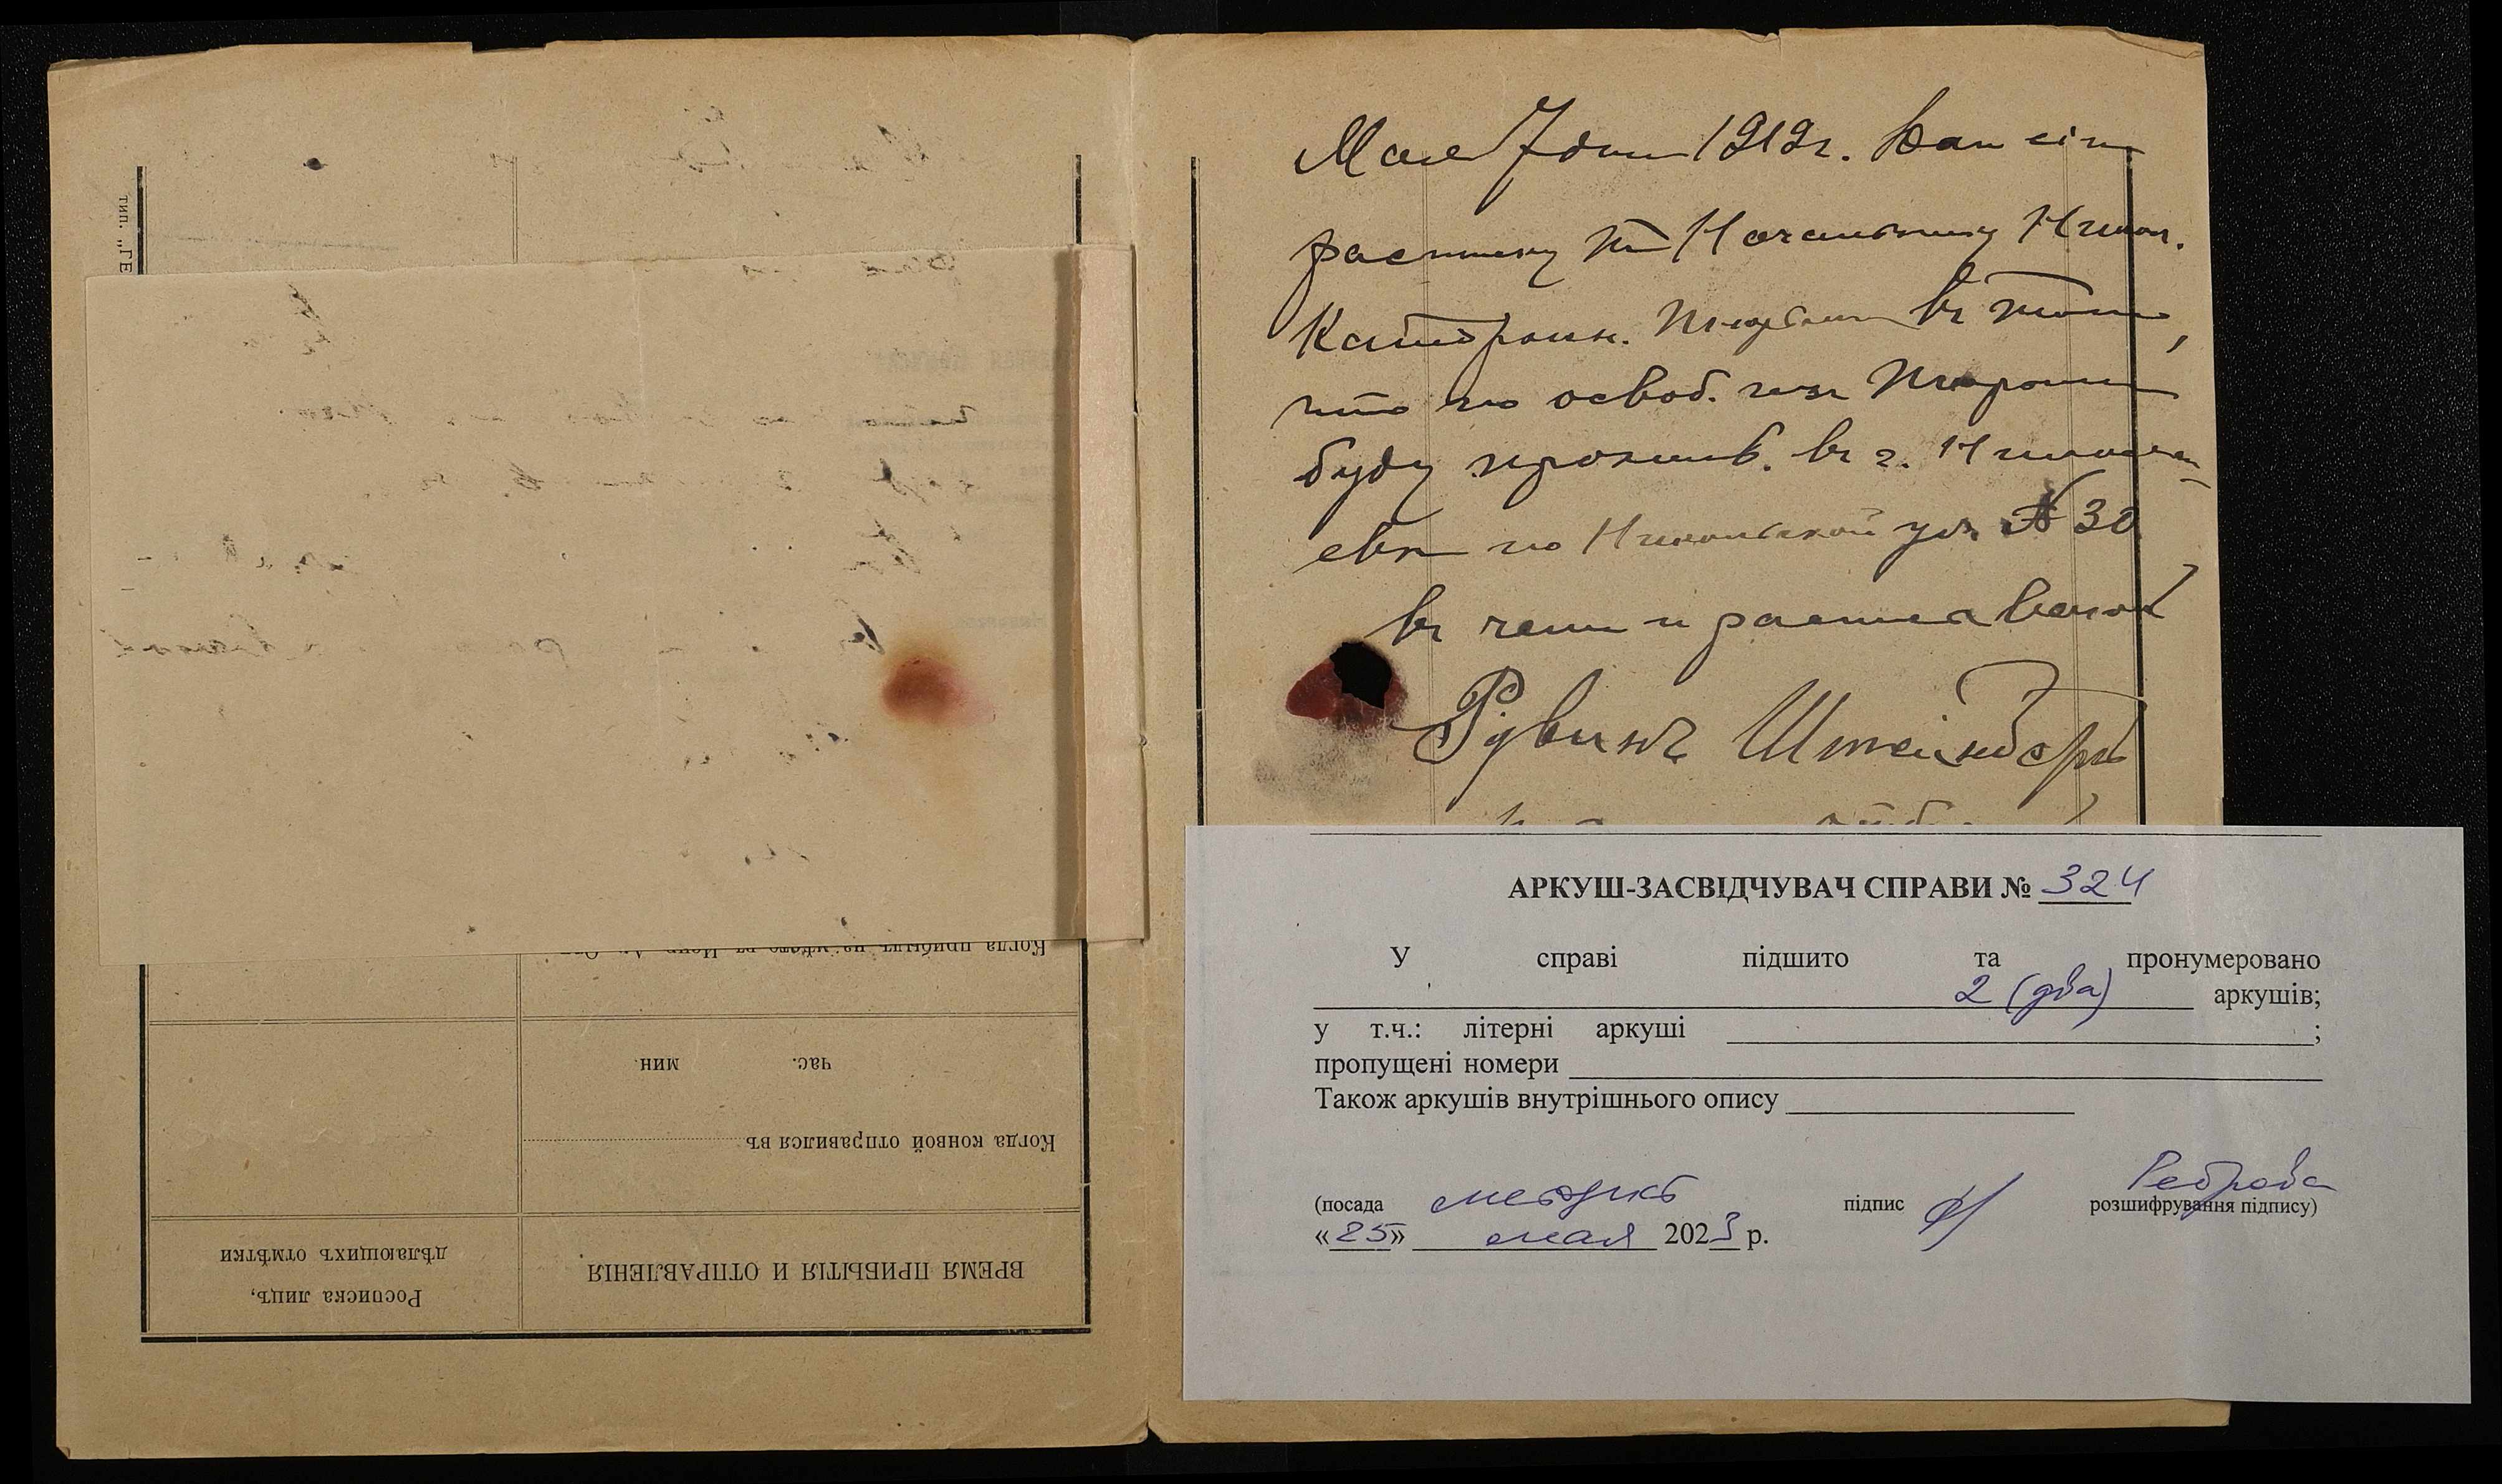 тип. „ГЕ
Когда прибылъ на мѣсто въ
час. мин.
Когда конвой отправился въ
ВРЕМЯ ПРИБЫТІЯ И ОТПРАВЛЕНІЯ.
Росписка лицъ,
дѣлающихъ отмѣтки
Мая 7 дня 1919г. Дан сію
расписку Г-ну Начальнику Никол.
Каторжн. Тюрьмы въ томъ,
что по освоб. изъ Тюрьмы
буду прожив. въ г. Никола-
евѣ по Никольской ул. № 30
въ чемъ и расписываюсь
Рувинъ Штейнбергъ
АРКУШ-ЗАСВІДЧУВАЧ СПРАВИ № 324
У справі підшито та пронумеровано
2 (два) аркушів;
у т.ч.: літерні аркуші ;
пропущені номери
Також аркушів внутрішнього опису
(посада підпис Реброва розшифрування підпису)
«25» мая 2023 р.